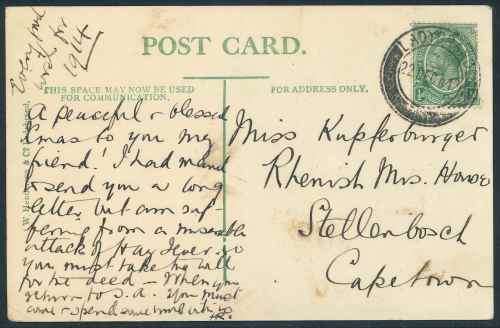 Every good
wish for
1914
POST CARD.
THIS SPACE MAY NOW BE USED
FOR COMMUNICATION.
FOR ADDRESS ONLY.
A peaceful & blessed
Xmas to you my
friend! I had meant
to send you a long
letter, but am suf
fering from a miserable
attack of Hay fever so
you must take the will
for the deed — When you
return to S.A. you must
come & spend some time with us.
LADY
Miss Kupferburger
Rhenish Mis. House
Stellenbosch
Capetown